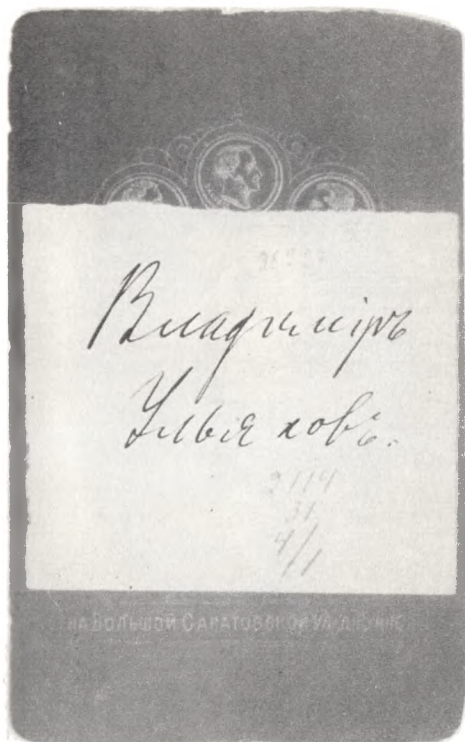 Владиміръ
Ульяновъ.
2114
31
4/1
на Большой Саратовской ул. д.